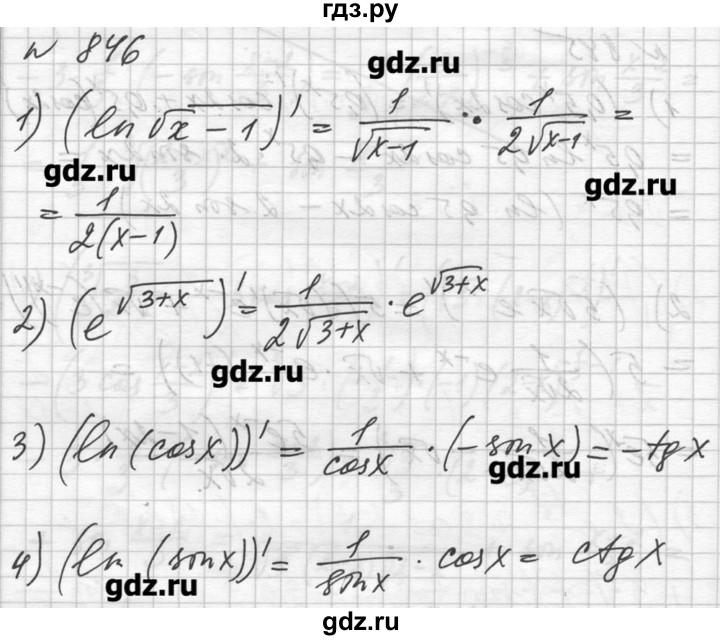 гдз.ру
№ 846
gdz.ru
1) (ln √(x-1))' = 1/√(x-1) · 1/(2√(x-1)) =
gdz.ru gdz.ru
= 1/(2(x-1))
2) (e^√(3+x))' = 1/(2√(3+x)) · e^√(3+x)
gdz.ru
3) (ln (cosx))' = 1/cosx · (-sinx) = -tgx
gdz.ru
4) (ln (sinx))' = 1/sinx · cosx = ctgx
gdz.ru
gdz.ru